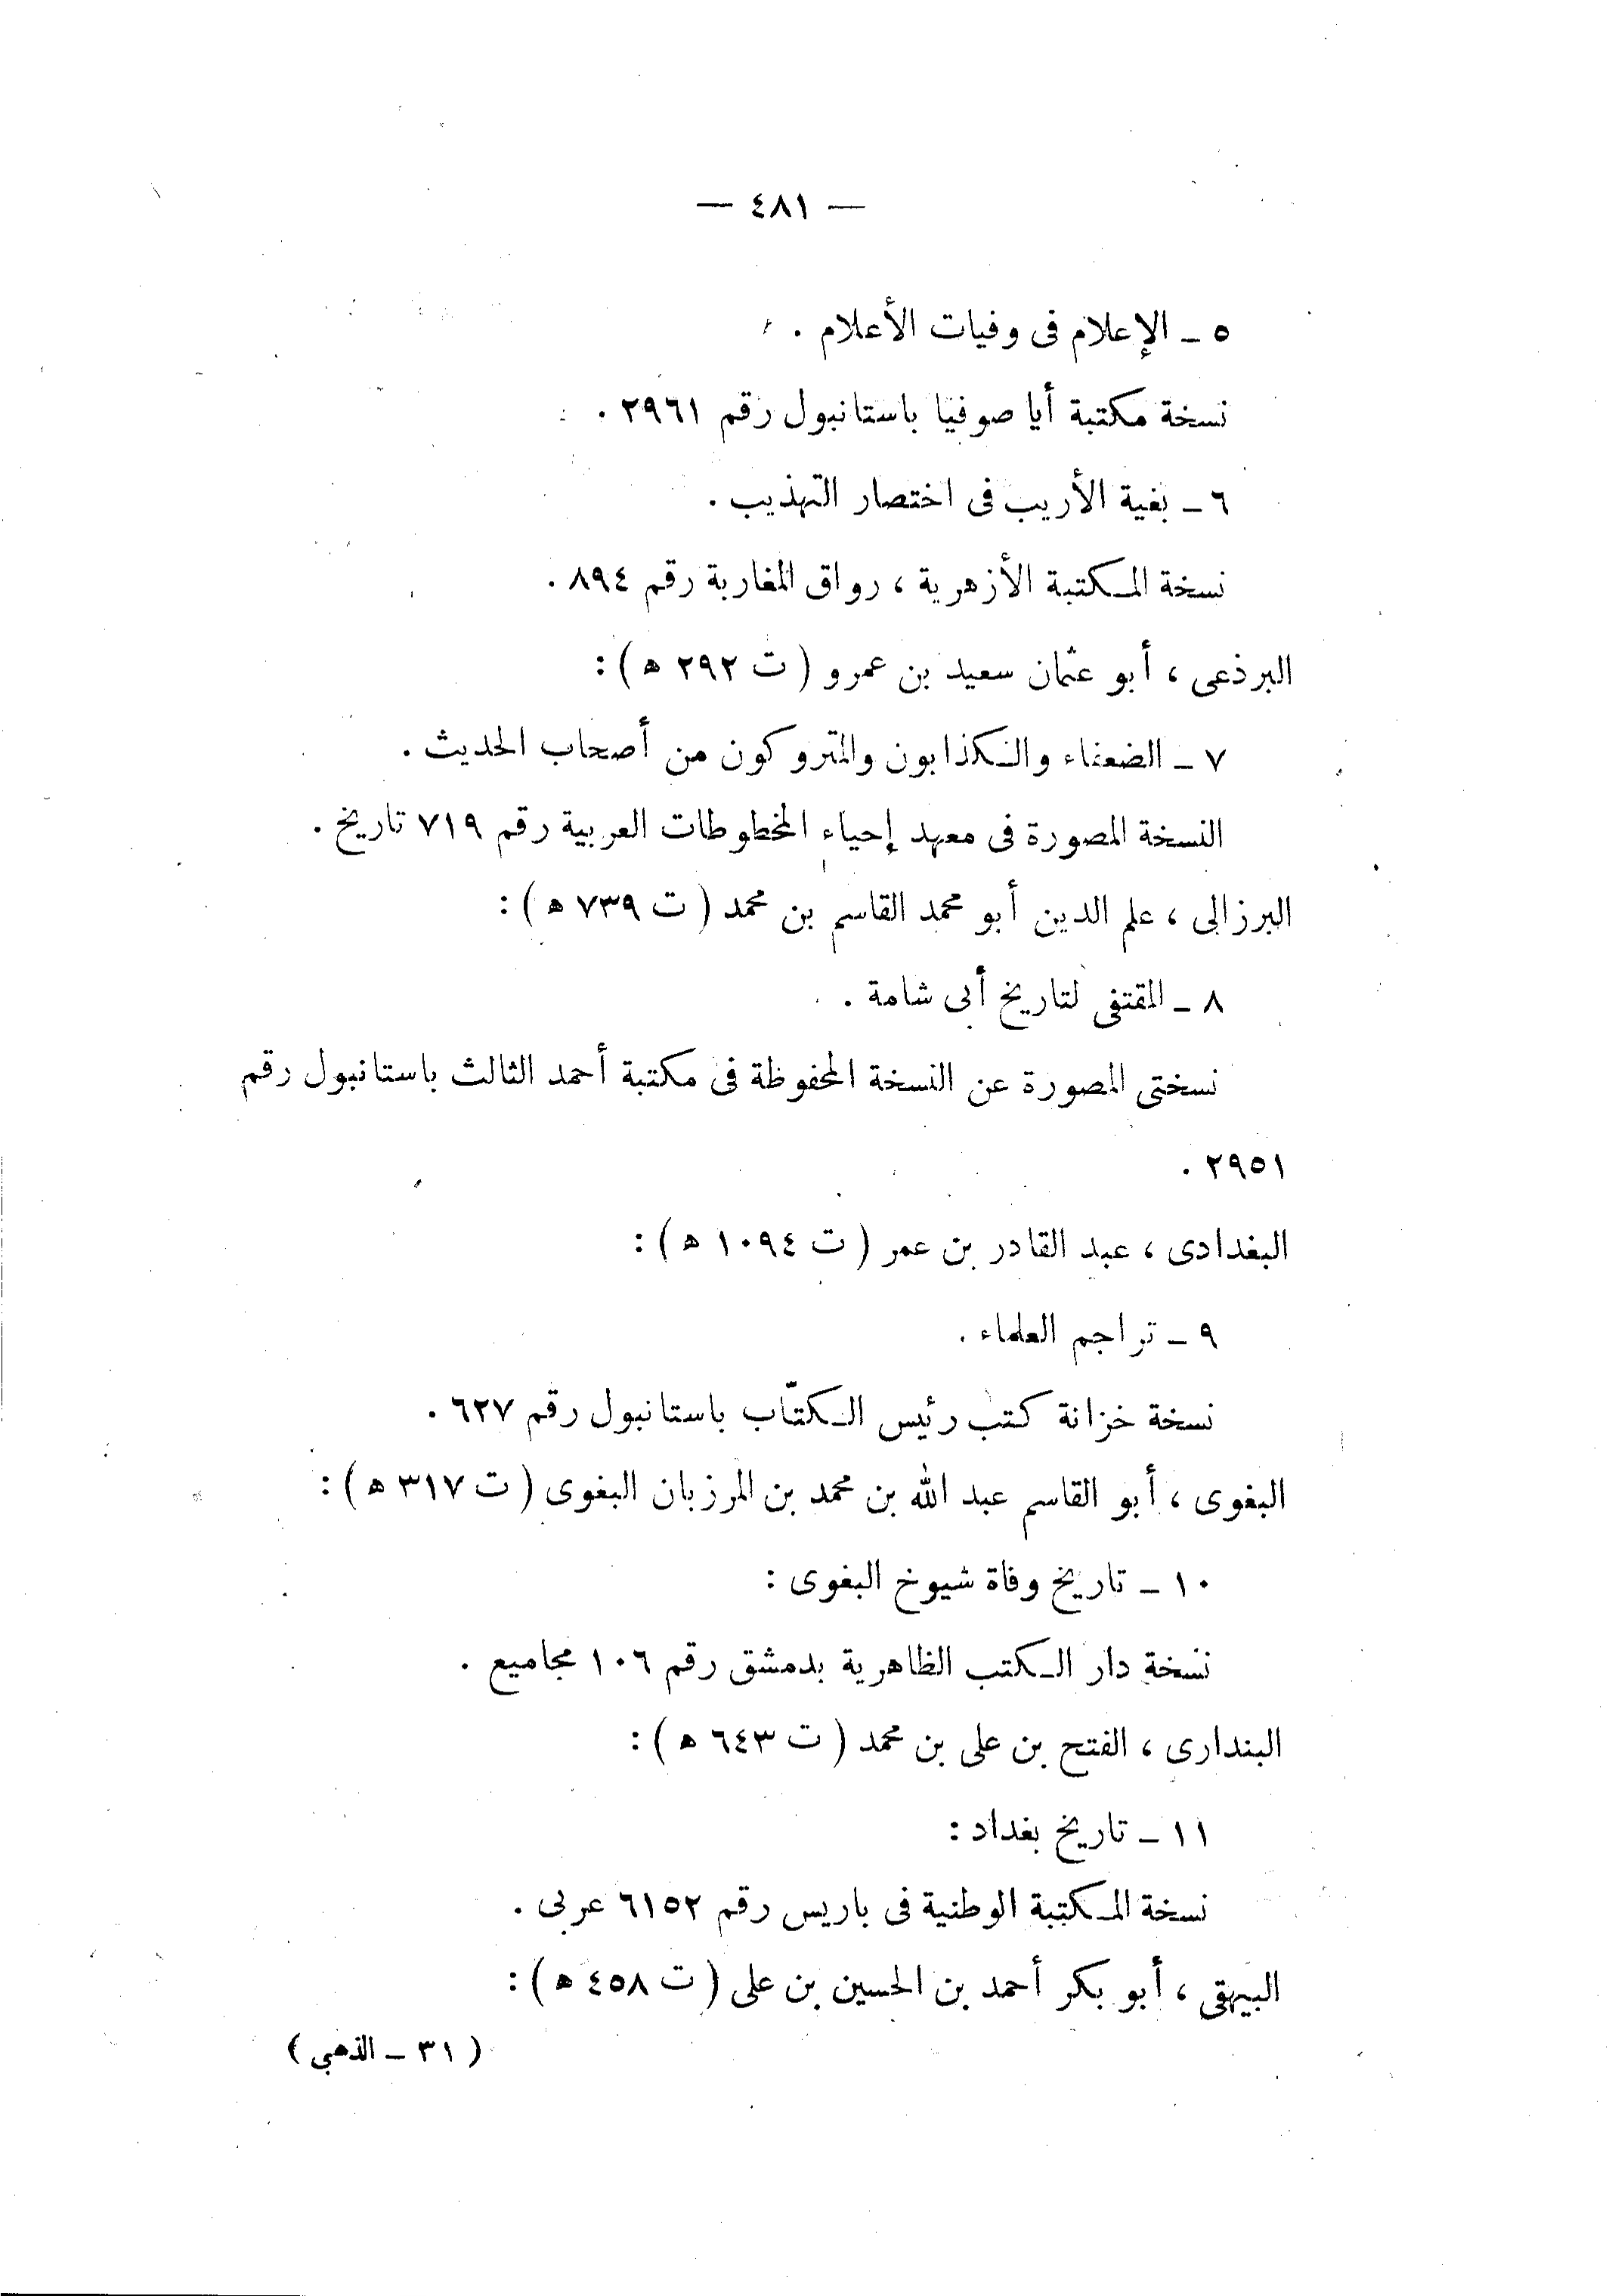 — ٤٨١ —
٥ ــ الإعلام فى وفيات الأعلام .
نسخة مكتبة أيا صوفيا باستانبول رقم ٢٩٦١ .
٦ ــ بغية الأريب فى اختصار التهذيب .
نسخة المكتبة الأزهرية ، رواق المغاربة رقم ٨٩٤ .
البرذعى ، أبو عثمان سعيد بن عمرو ( ت ٢٩٢ ه ) :
٧ ــ الضعفاء والكذابون والمتروكون من أصحاب الحديث .
النسخة المصورة فى معهد إحياء المخطوطات العربية رقم ٧١٩ تاريخ .
البرزالى ، علم الدين أبو محمد القاسم بن محمد ( ت ٧٣٩ ه ) :
٨ ــ المقتفى لتاريخ أبى شامة .
نسختى المصورة عن النسخة المحفوظة فى مكتبة أحمد الثالث باستانبول رقم
٢٩٥١ .
البغدادى ، عبد القادر بن عمر ( ت ١٠٩٤ ه ) :
٩ ــ تراجم العلماء .
نسخة خزانة كتب رئيس الكتّاب باستانبول رقم ٦٢٧ .
البغوى ، أبو القاسم عبد الله بن محمد بن المرزبان البغوى ( ت ٣١٧ ه ) :
١٠ ــ تاريخ وفاة شيوخ البغوى :
نسخة دار الكتب الظاهرية بدمشق رقم ١٠٦ مجاميع .
البندارى ، الفتح بن على بن محمد ( ت ٦٤٣ ه ) :
١١ ــ تاريخ بغداد :
نسخة المكتبة الوطنية فى باريس رقم ٦١٥٢ عربى .
البيهقى ، أبو بكر أحمد بن الحسين بن على ( ت ٤٥٨ ه ) :
( ٣١ ــ الذهبي )